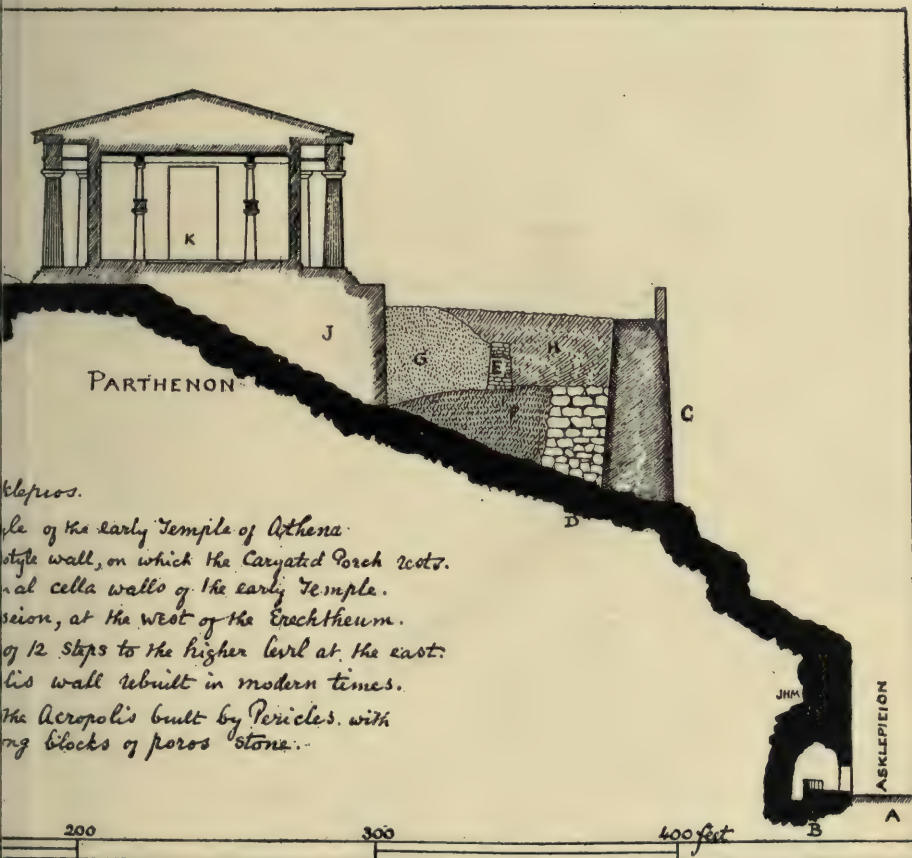 K
J
G
E
H
F
C
PARTHENON
D
klepios.
le of the early Temple of Athena
style wall, on which the Caryatid Porch rests.
nal cella walls of the early Temple.
seion, at the west of the Erechtheum.
of 12 steps to the higher level at the east.
lis wall rebuilt in modern times.
the Acropolis built by Pericles. with
ng blocks of poros stone.
JHM
ASKLEPIEION
A
B
200 300 400 feet